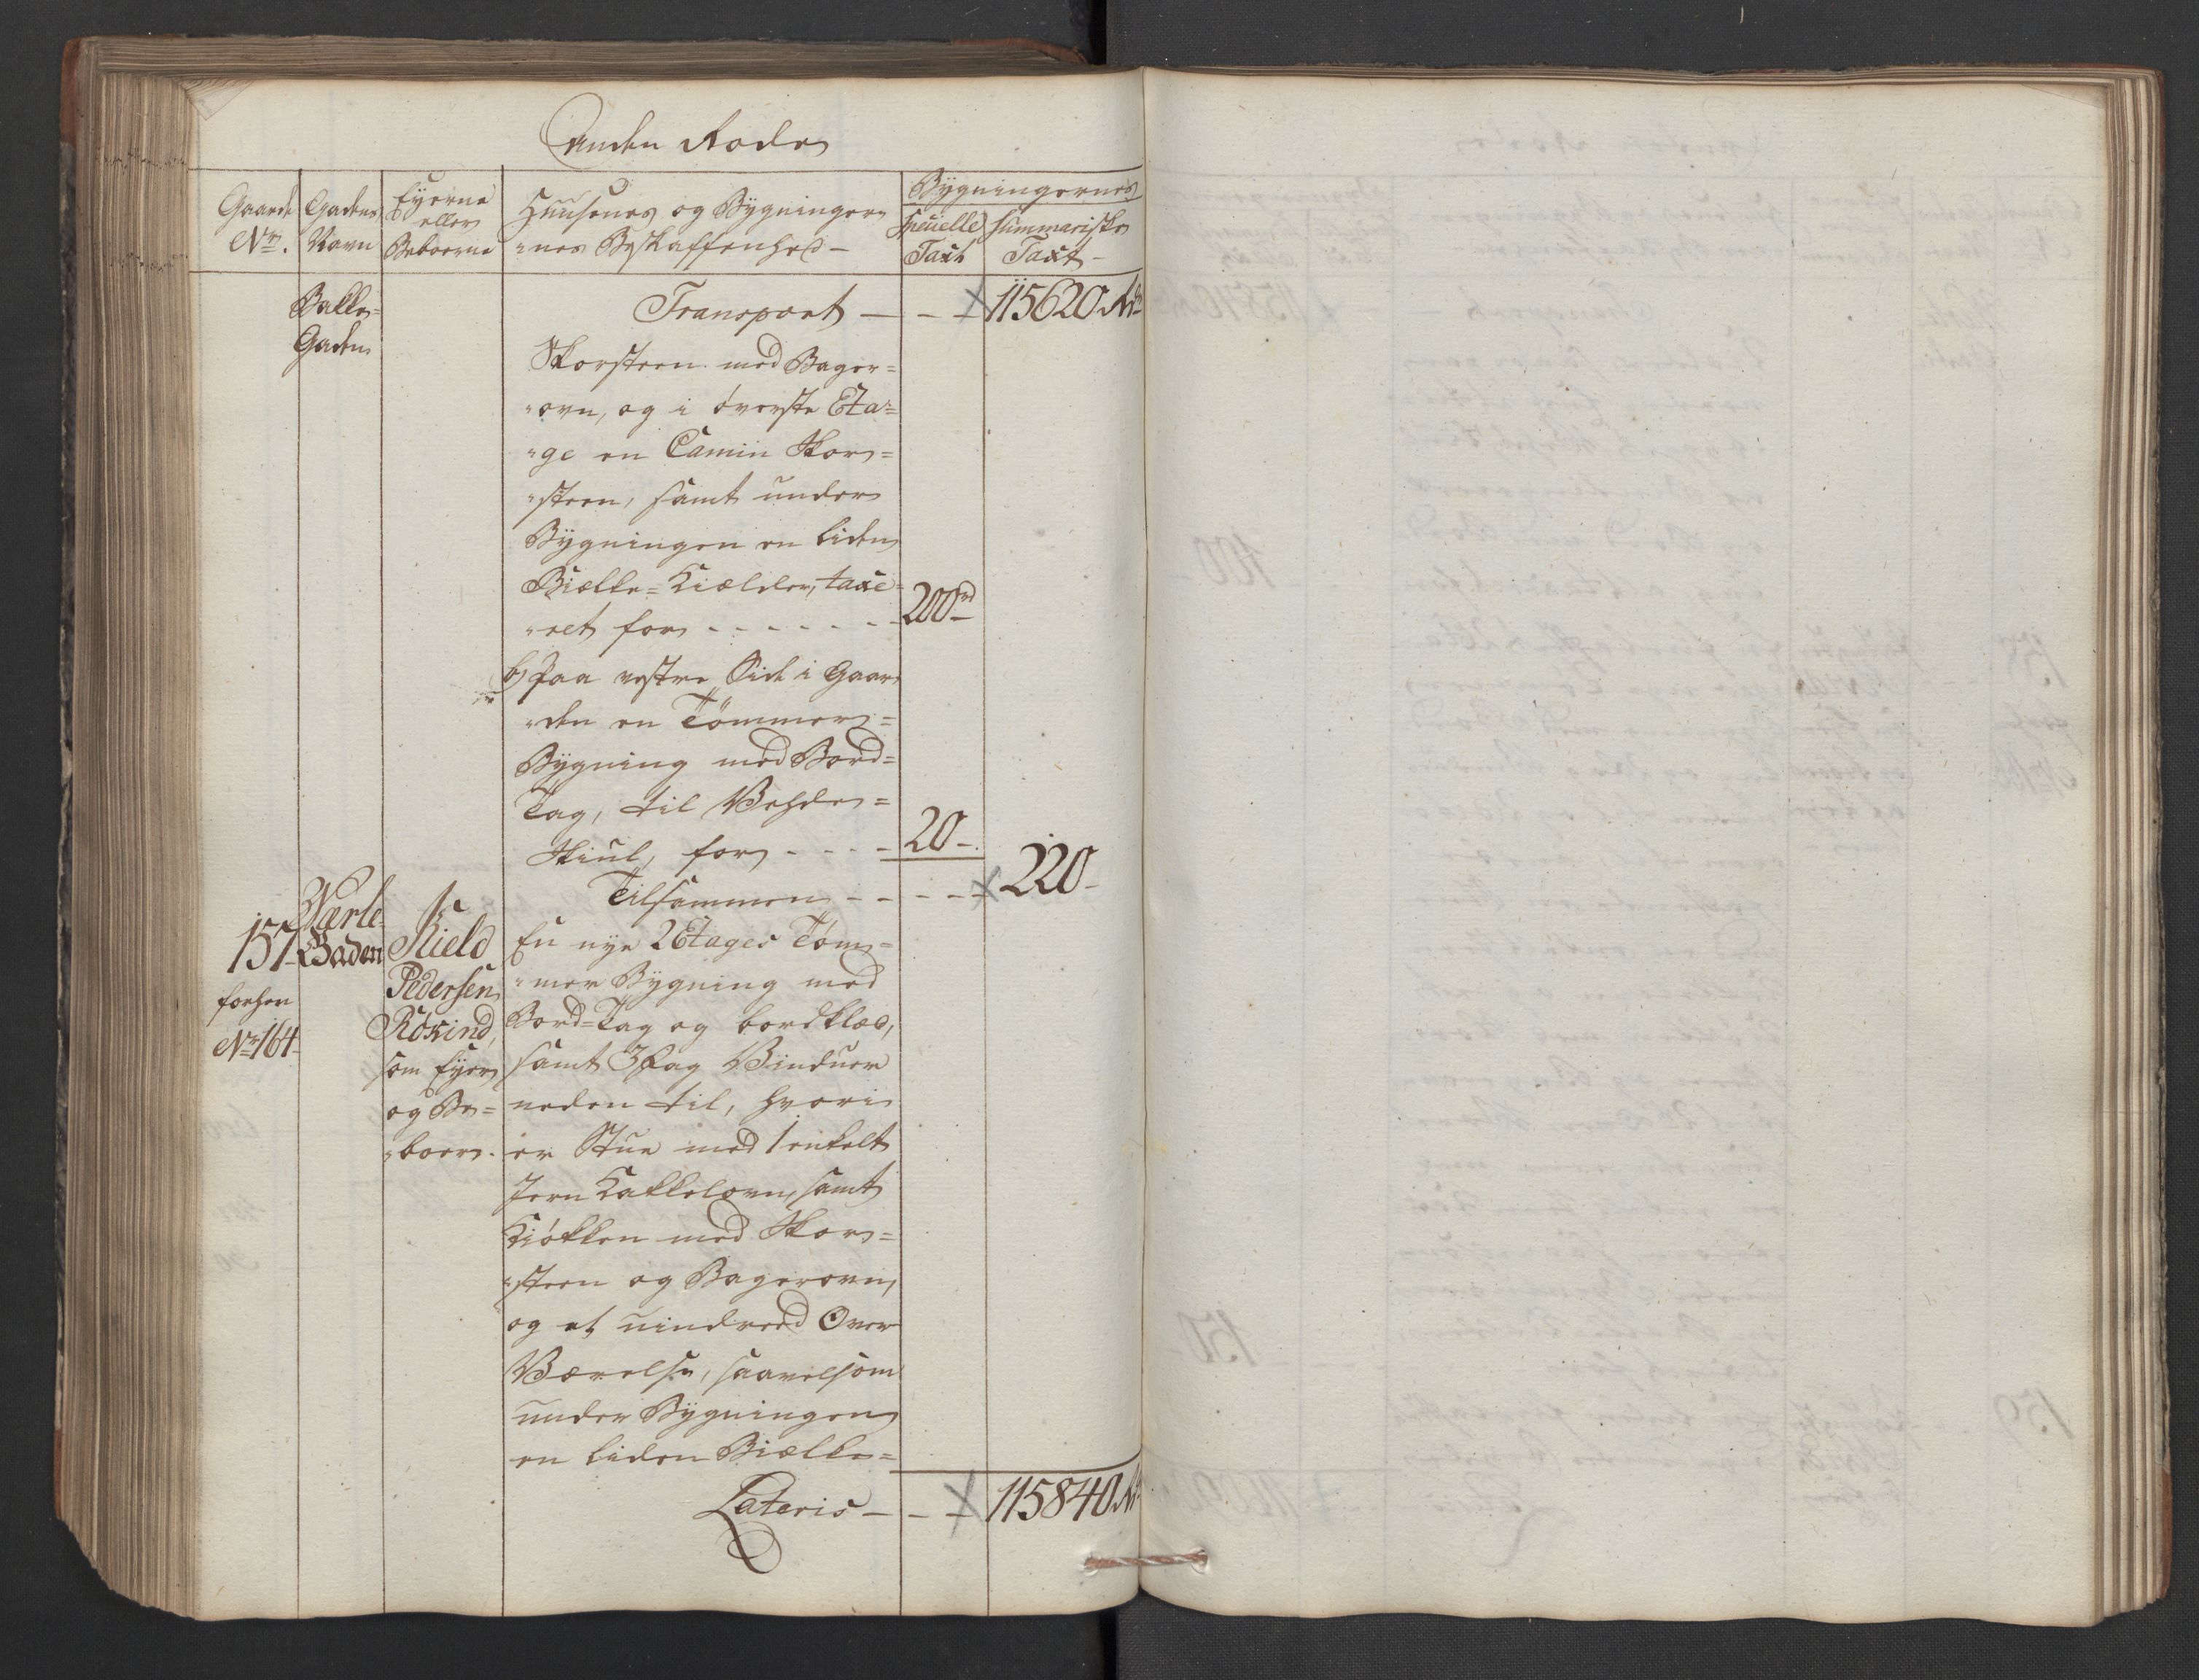 Anden Rode
Gaarde No.
Gadens Navn
Eyerne eller Beboerne
Huusenes og Bygninger=
=nes Beskaffenhed -
Bygningernes
specielle Taxt
summariske Taxt -
Bakke=
Gaden
Transport - - - 115620 Rd
Skorsteen med Bager=
=ovn, og i øverste Eta=
=ge en Camin Skor=
=steen, samt under
Bygningen en liden
Bielke=Kielder, taxe=
=ret for - - - - - - 200 rd
b) paa vestre Side i Gaar
=den en Tømmer=
Bygning med Bord=
Tag, til Vehde=
Skiul, for - - - - 20 -
Tilsammen - - - - - 220 -
157
forhen
No 164
Værle=
Baden
Kield
Pedersen
som Eyer
og Be=
=boer.
En nye 2 Etages Tøm=
=mer Bygning med
Bord=Tag og bordklæd,
samt 3 Fag Vinduer
neden til, hvori
er Stue med 1 enkelt
Jern Kakkelovn, samt
Kiøkken med Skor=
=steen og Bagerovn,
og et uindreed Over
Værelse, saavelsom
under Bygningen
en liden Bielke=
Lateris - - - 115840 Rd